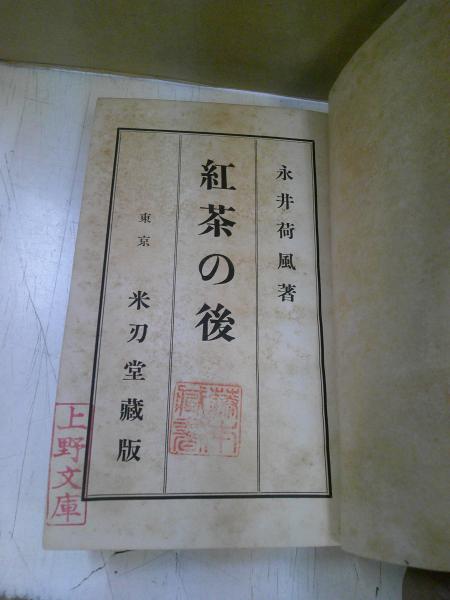 永井荷風著
紅茶の後
東京 米刃堂藏版
上野文庫